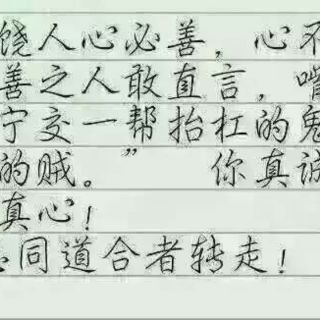 饶人心必善，心不
善之人敢直言，嘴
宁交一帮抬杠的鬼
的贼。” 你真诚
真心！
同道合者转走！